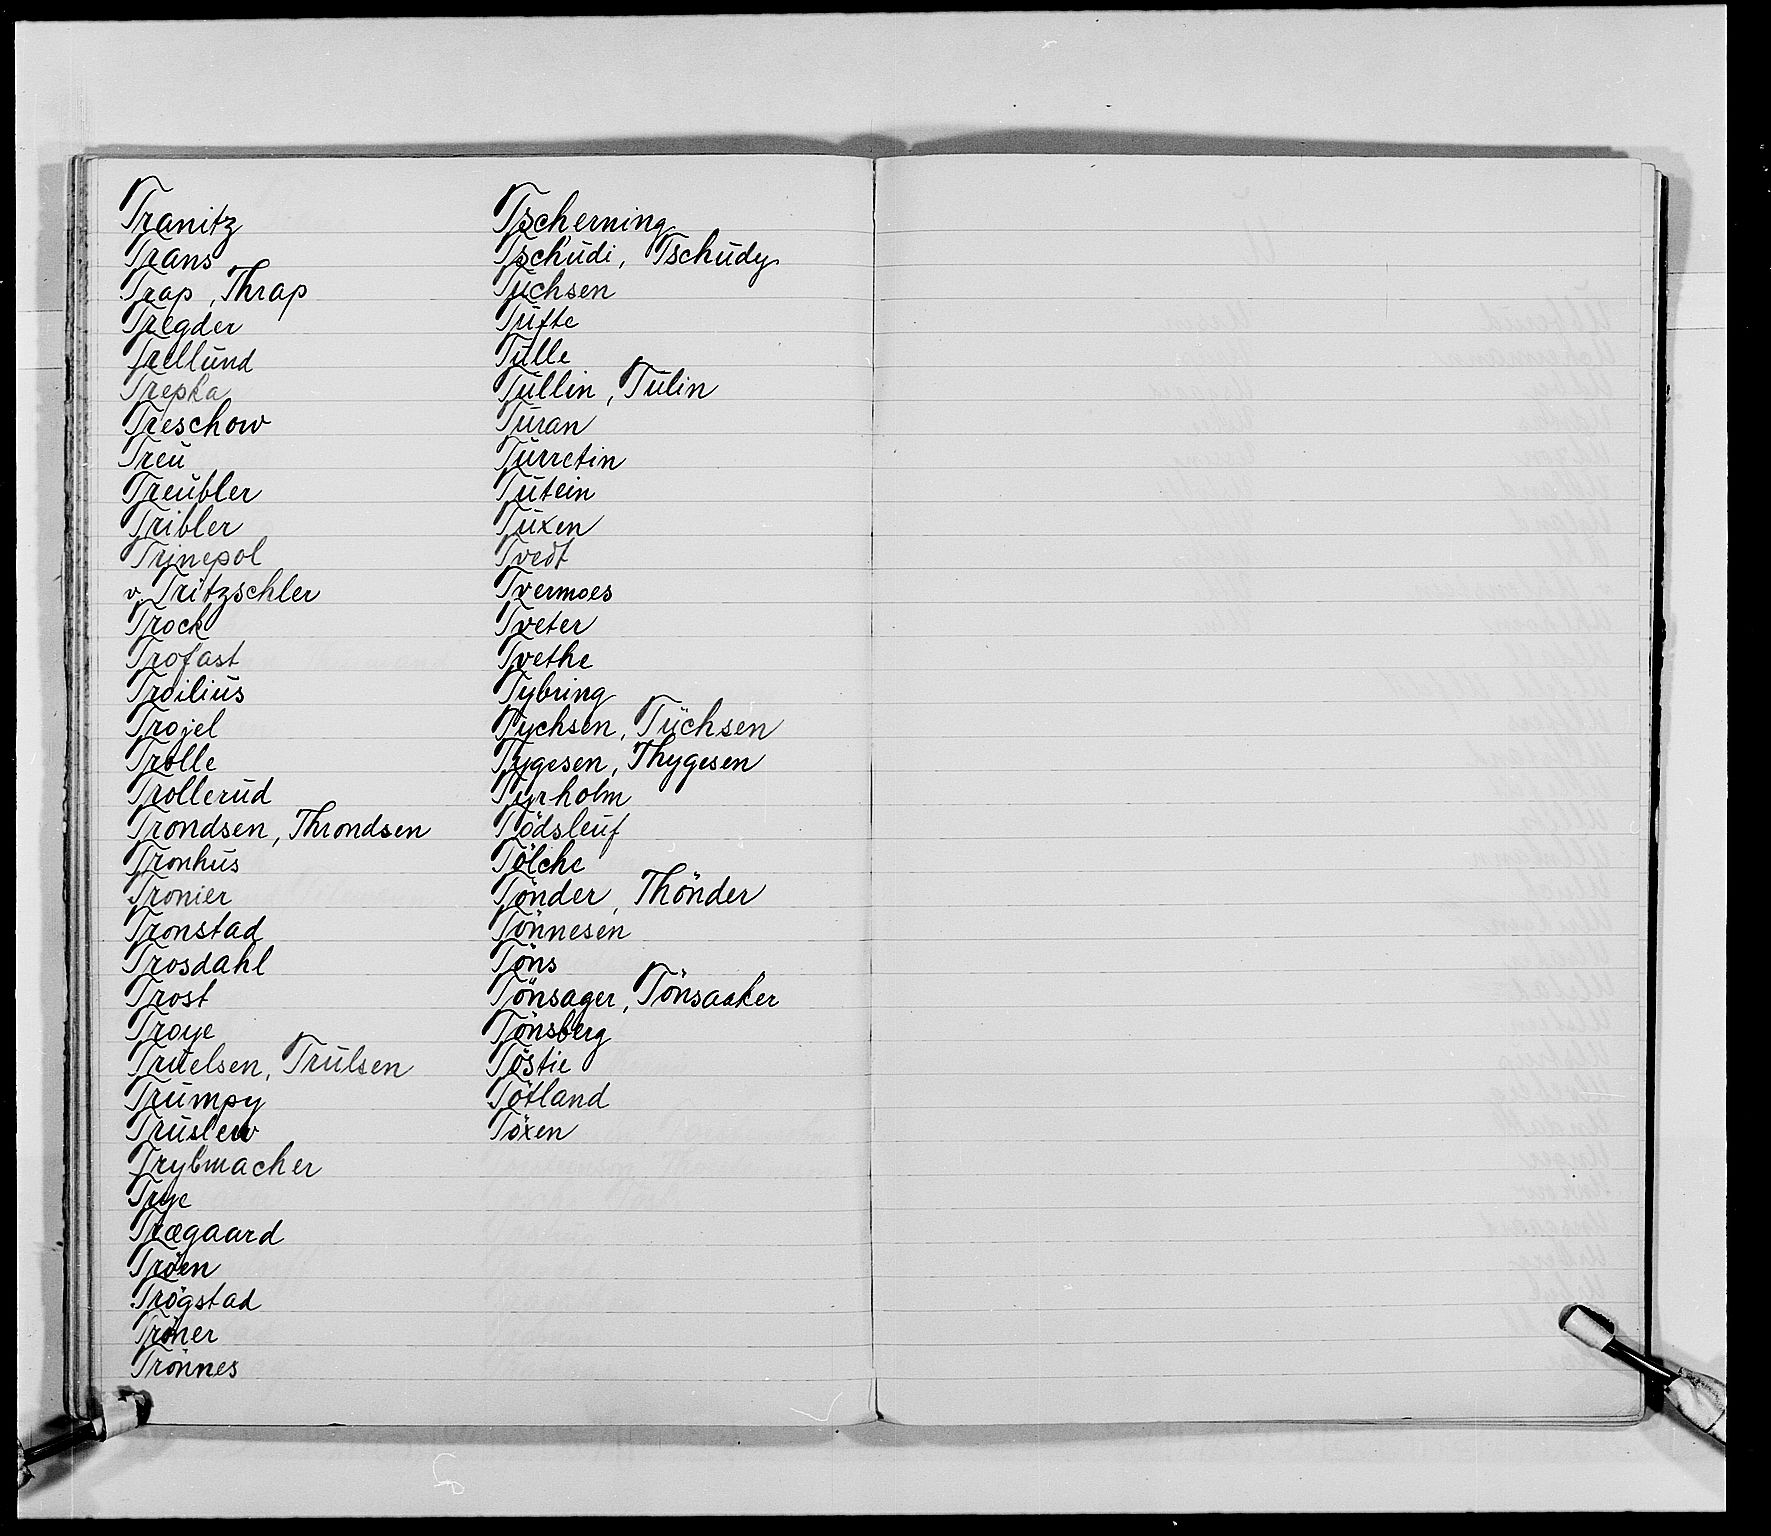 Tranitz
Trans
Trap, Thrap
Tregder
Trellund
Trepka
Treschow
Treu
Treubler
Tribler
Trinepol
v. Tritzschler
Trock
Trofast
Troilius
Trojel
Trolle
Trollerud
Trondsen, Throndsen
Tronhus
Tronier
Tronstad
Trosdahl
Trost
Troye
Truelsen, Trulsen
Trumpy
Truslew
Trybmacher
Trye
Trægaard
Tröen
Trögstad
Tröner
Trönnes
Tscherning
Tschudi, Tschudy
Tuchsen
Tufte
Tulle
Tullin, Tulin
Turan
Turretin
Tutein
Tuxen
Tvedt
Tvermoes
Tveter
Tvethe
Tybring
Tychsen, Tüchsen
Tygesen, Thygesen
Tyrholm
Tödsleuf
Tölche
Tönder, Thönder
Tönnesen
Töns
Tönsager, Tönsaaker
Tönsberg
Töstie
Tötland
Töxen